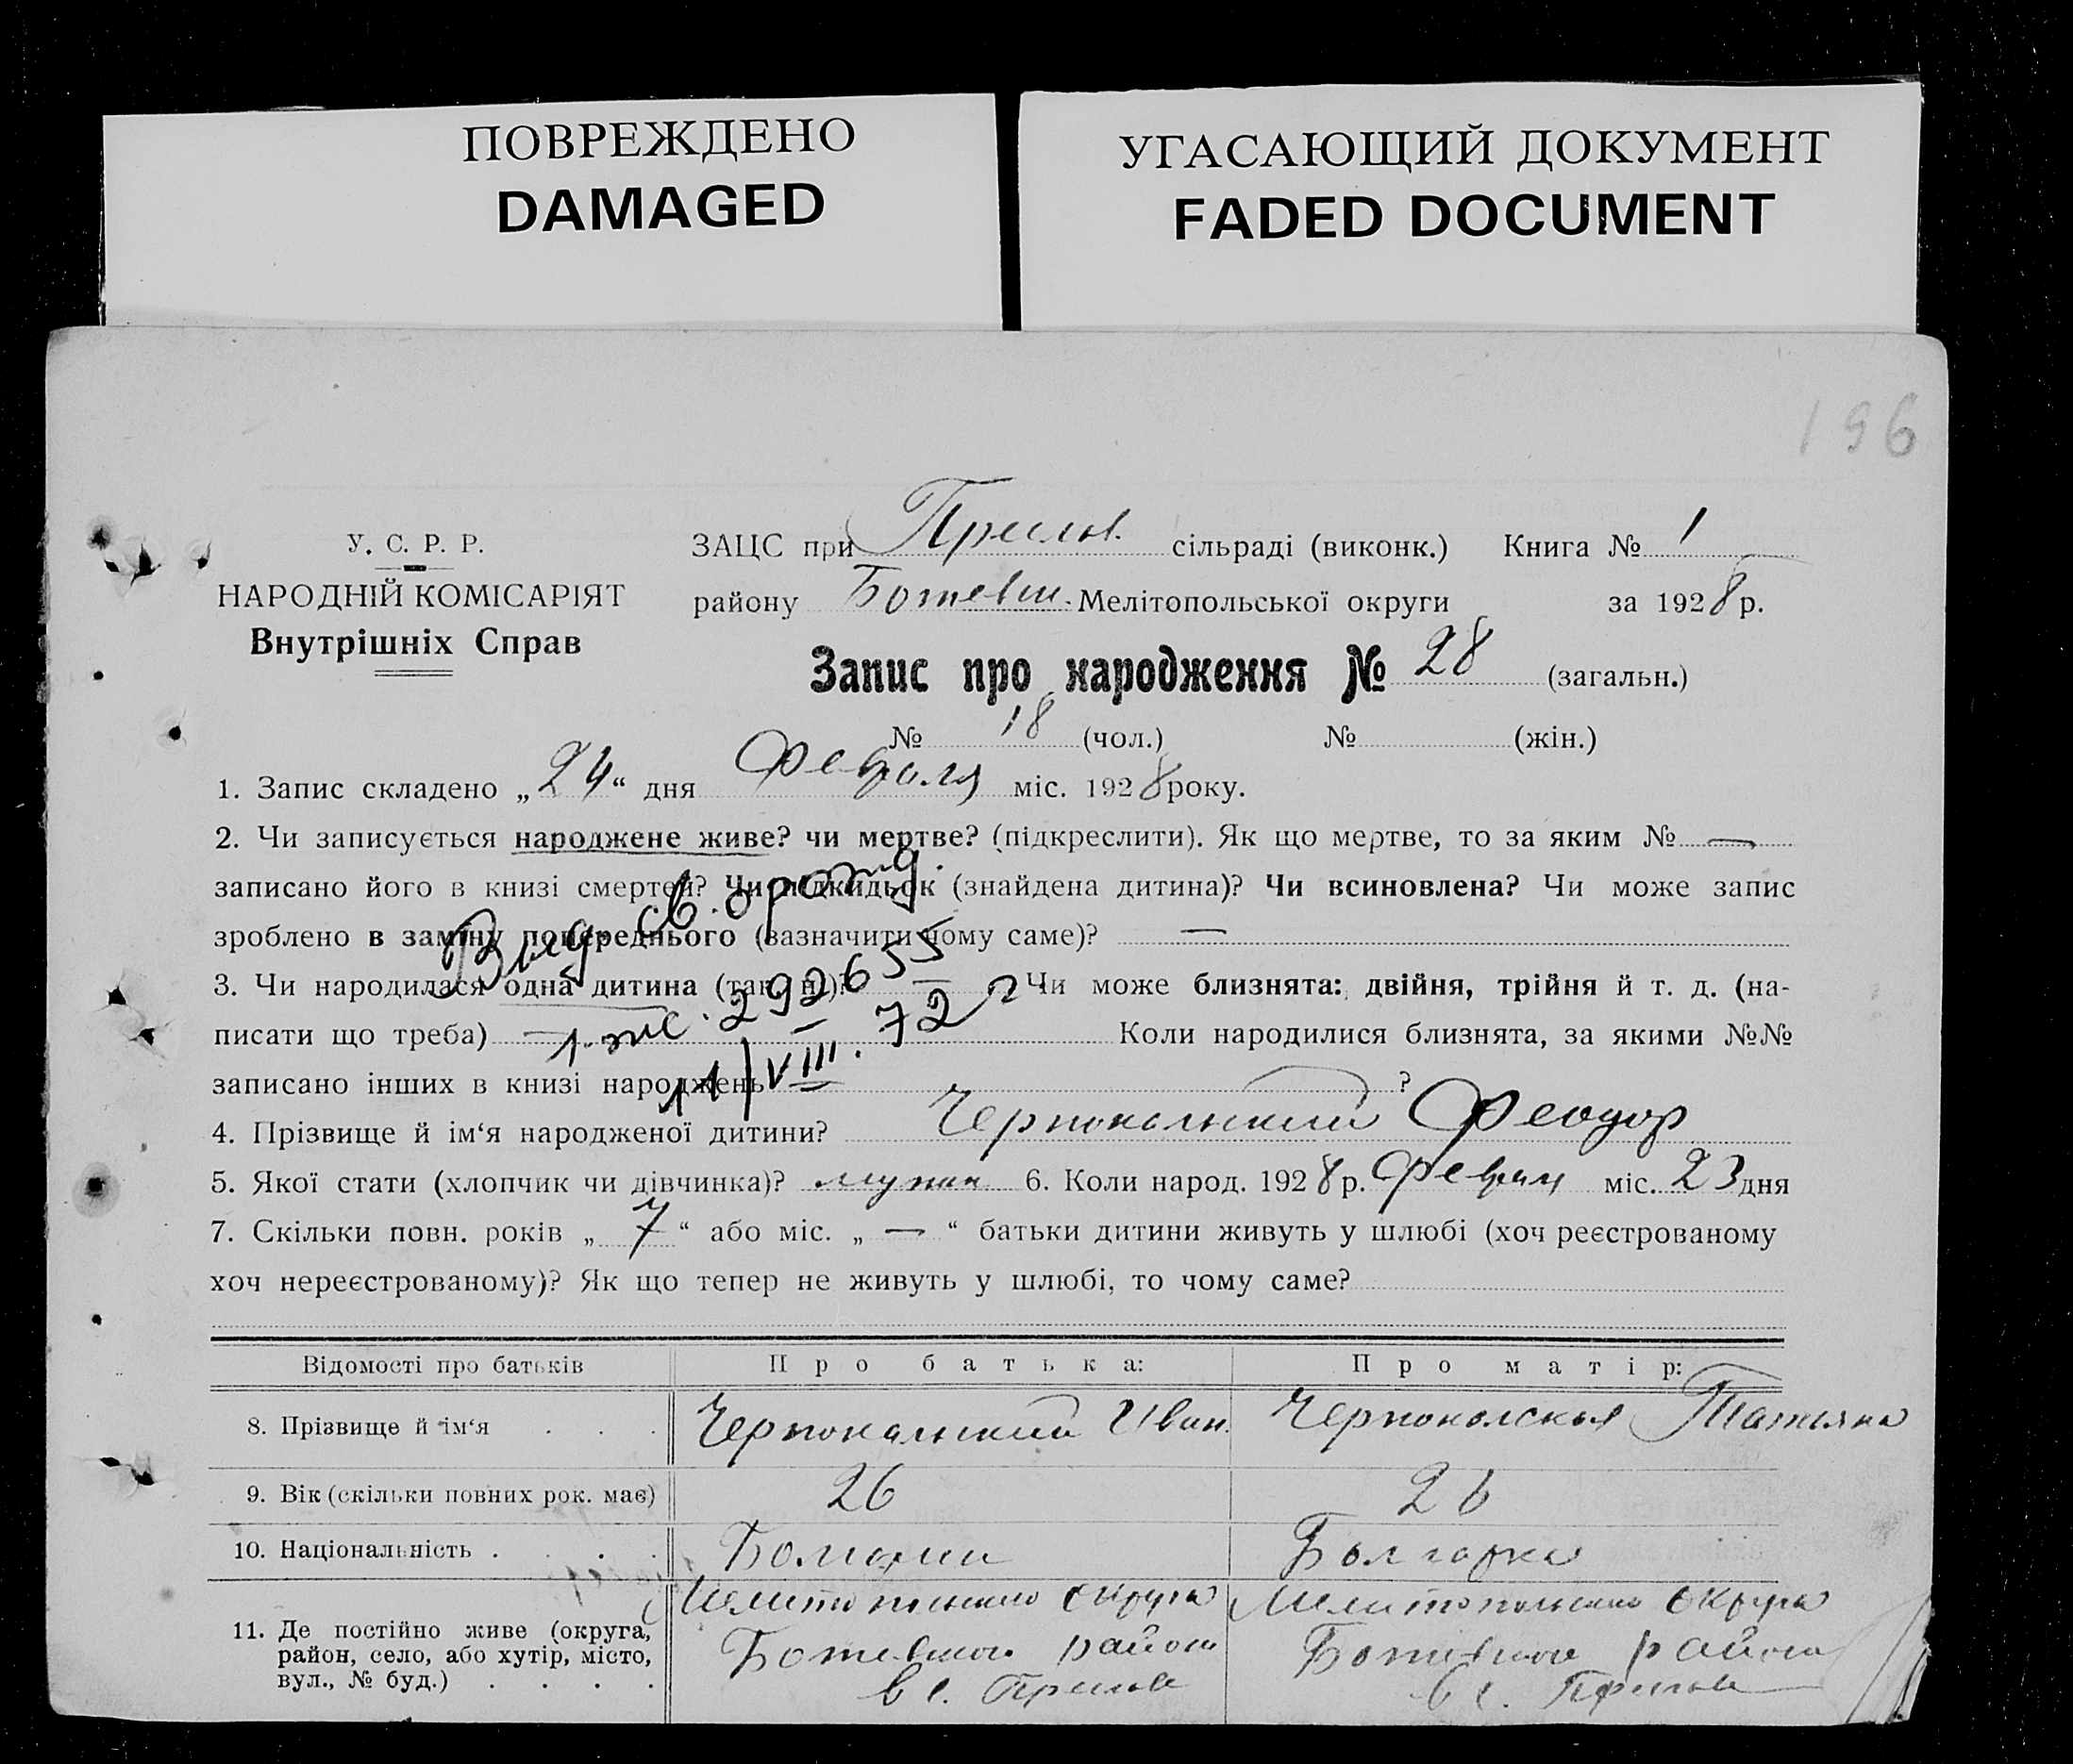 ПОВРЕЖДЕНО
DAMAGED
УГАСАЮЩИЙ ДОКУМЕНТ
FADED DOCUMENT
196
У. С. Р. Р.
НАРОДНІЙ КОМІСАРІЯТ
Внутрішніх Справ
ЗАЦС при сільраді (виконк.) Книга № 1
району Ботевск. Мелітопольської округи за 1928 р.
Запис про народження № 28 (загальн.)
№ 18 (чол.) № (жін.)
1. Запис складено „24“ дня Февраля міс. 1928 року.
2. Чи записується народжене живе? чи мертве? (підкреслити). Як що мертве, то за яким № —
записано його в книзі смертей? Чи підкидьок (знайдена дитина)? Чи всиновлена? Чи може запис
зроблено в заміну попереднього (зазначити чому саме)? —
Выд. св. о рожд.
3. Чи народилася одна дитина (так, ні)? — Чи може близнята: двійня, трійня й т. д. (на-
писати що треба) — Коли народилися близнята, за якими №№
1-жс. 292655
записано інших в книзі народжень ?
11/VIII. 72 г
4. Прізвище й ім‘я народженої дитини? Феодор
5. Якої стати (хлопчик чи дівчинка)? 6. Коли народ. 1928 р. міс. 23 дня
7. Скільки повн. років „ 7 “ або міс. „ — “ батьки дитини живуть у шлюбі (хоч реєстрованому
хоч нереєстрованому)? Як що тепер не живуть у шлюбі, то чому саме?
Відомості про батьків Про батька: Про матір:
8. Прізвище й ім‘я . . . Иван. Татьяна
9. Вік (скільки повних рок. має) 26 26
10. Національність . . . . Болгарин Болгарка
11. Де постійно живе (округа, район, село, або хутір, місто, вул., № буд.) . . . .
Мелитопольского округа Мелитопольского округа
Ботевского района Ботевского района
в с. в с.